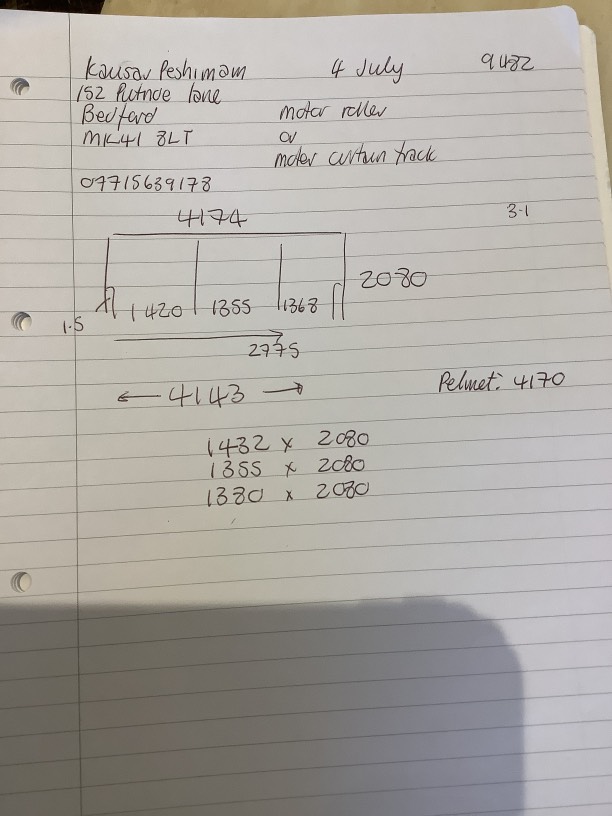 Kausar Peshimam 4 July 9482
152 Putnoe lane
Bedford motor roller
MK41 8LT or
motor curtain track
07715639178
4174 3.1
2080
1420 1355 1368
1.5
2775
4143 Pelmet: 4170
1432 x 2080
1355 x 2080
1380 x 2080